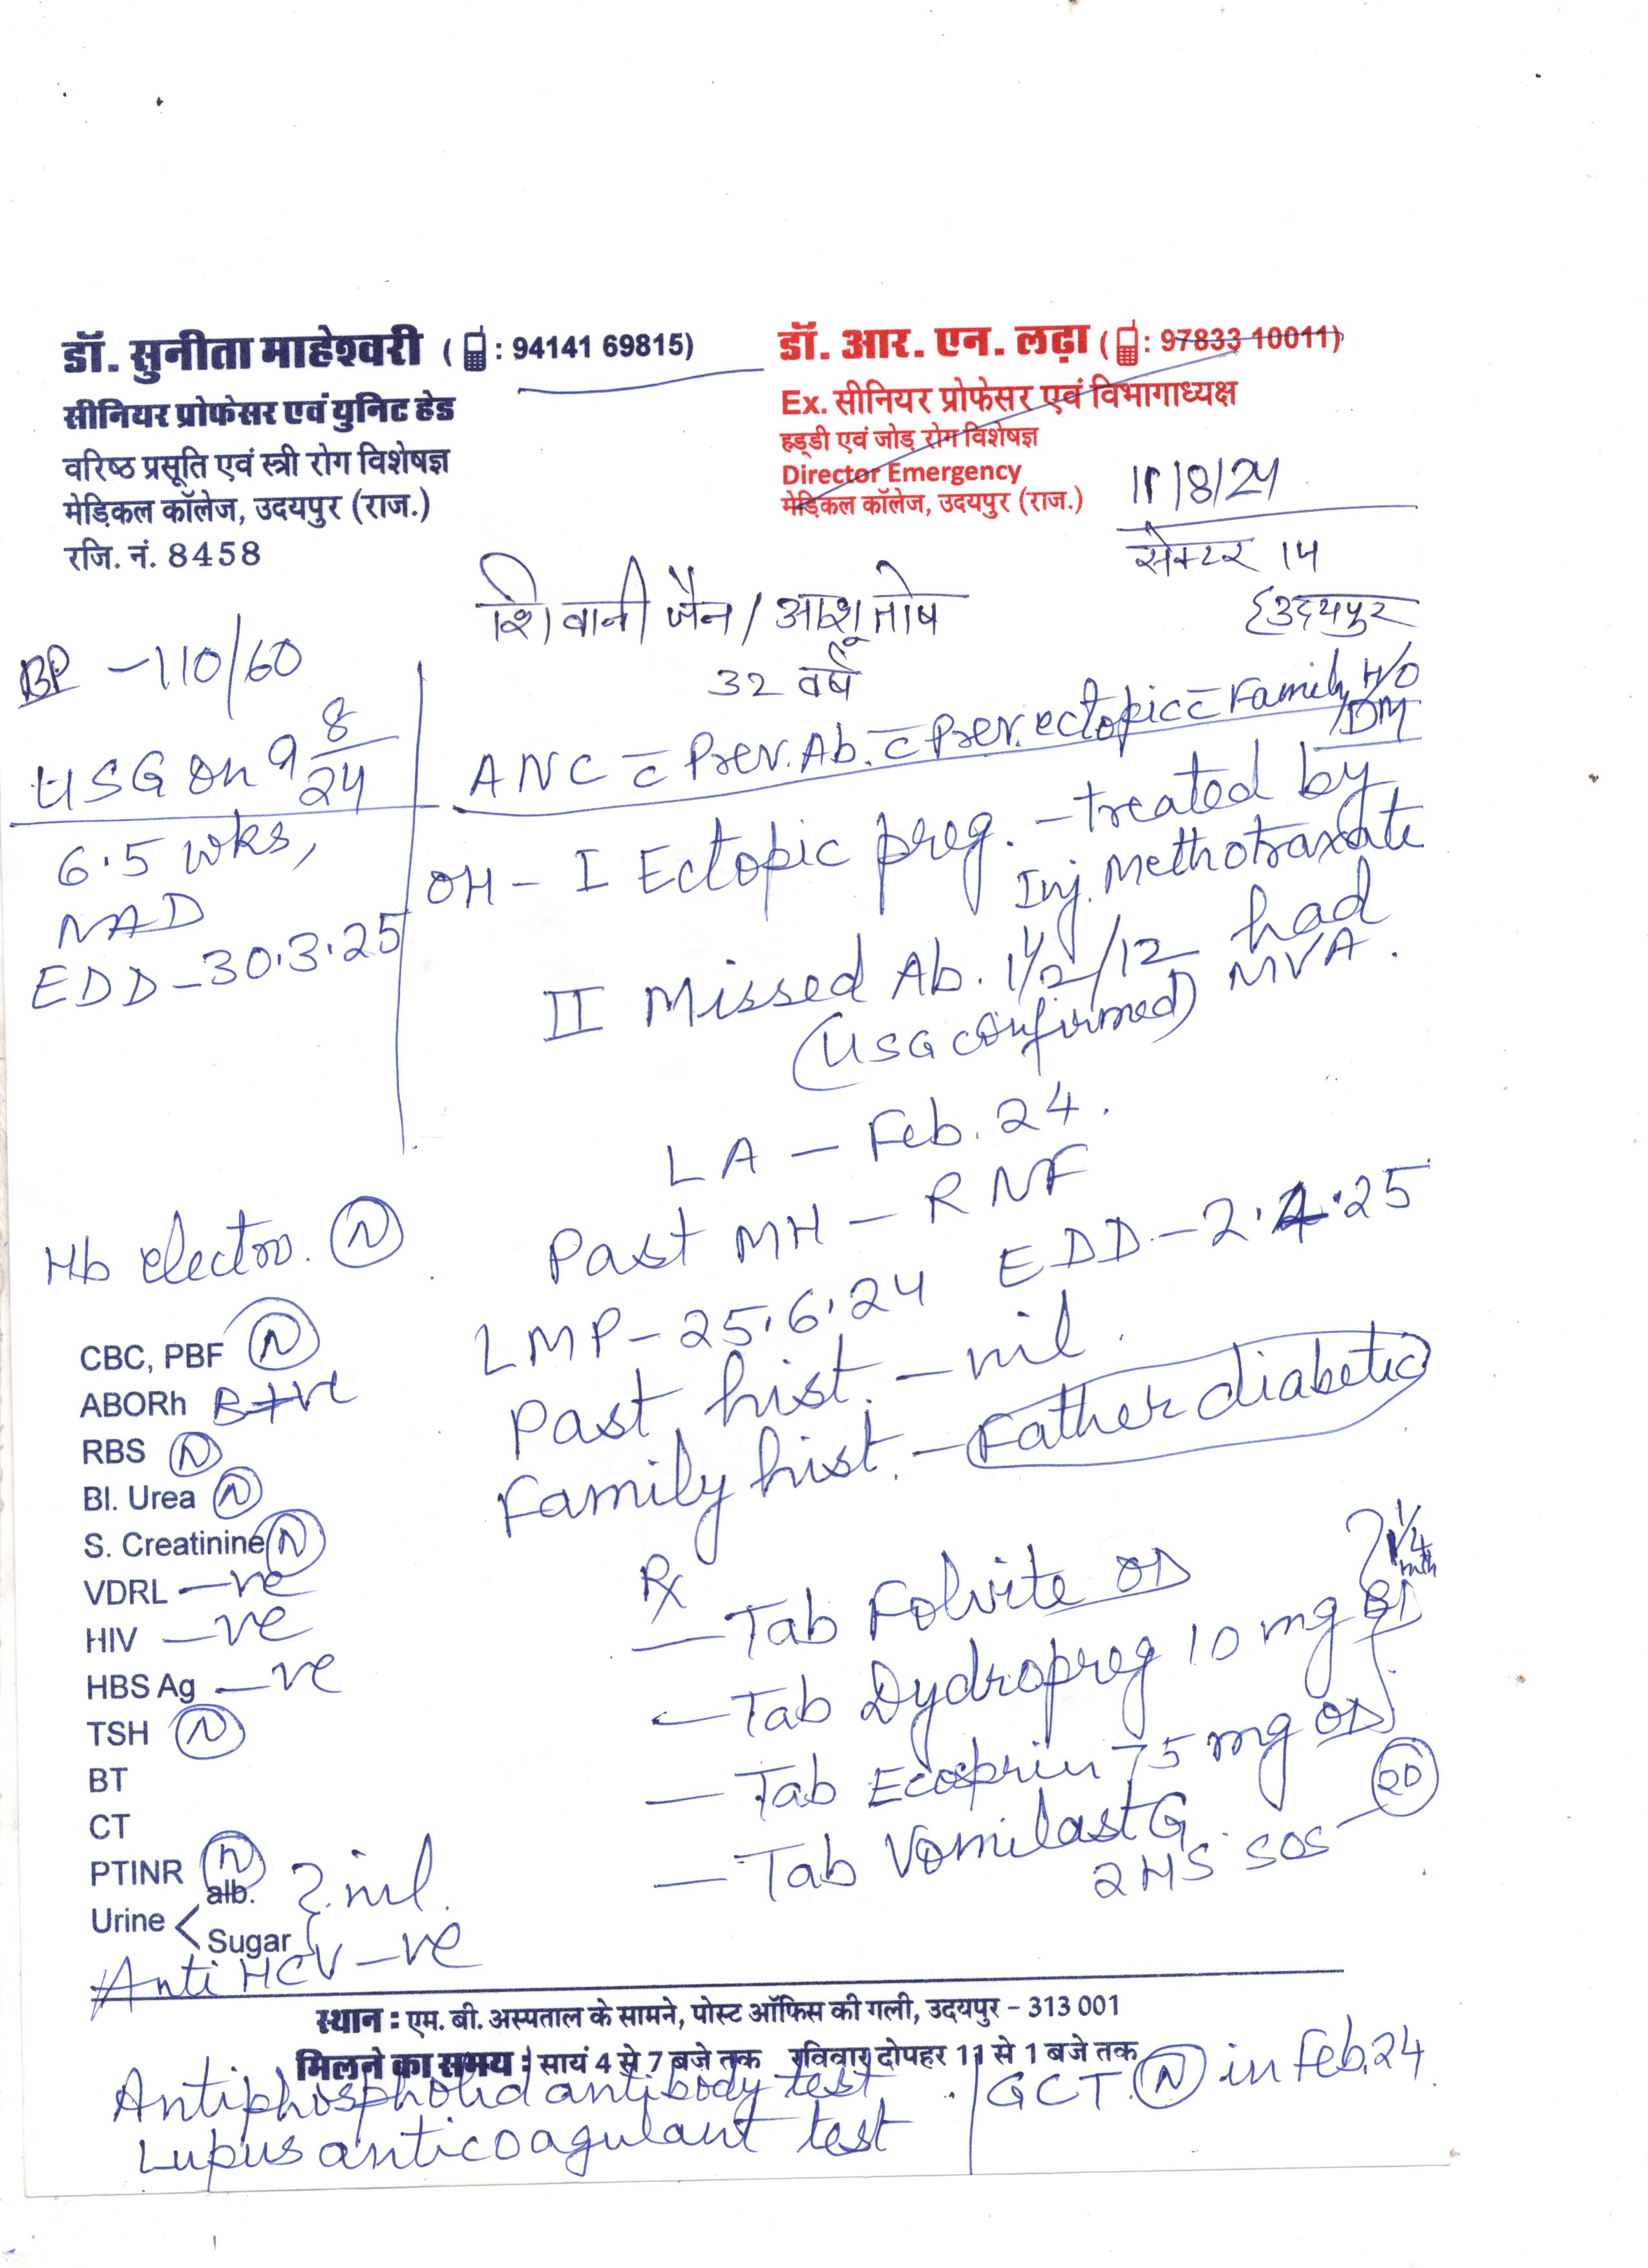 डॉ. सुनीता माहेश्वरी ( : 94141 69815)
सीनियर प्रोफेसर एवं युनिट हेड
वरिष्ठ प्रसूति एवं स्त्री रोग विशेषज्ञ
मेडिकल कॉलेज, उदयपुर (राज.)
रजि. नं. 8458
डॉ. आर. एन. लढ़ा ( : 97833 10011)
Ex. सीनियर प्रोफेसर एवं विभागाध्यक्ष
हड्डी एवं जोड़ रोग विशेषज्ञ
Director Emergency
मेडिकल कॉलेज, उदयपुर (राज.)
11/8/24
सेक्टर 14
उदयपुर
शिवानी जैन / आशूतोष
32 वर्ष
BP - 110/60
USG on 9 8/24
6.5 wks,
NAD
EDD - 30.3.25
ANC c̄ Prev. Ab. c̄ Prev. ectopic c̄ Family H/O DM
OH - I Ectopic preg. - treated by
Inj. Methotraxate
II Missed Ab. 1½/12 had
(USG confirmed) MVA.
LA - Feb. 24.
Past MH - R NF
LMP - 25.6.24 EDD - 2.4.25
Past hist. - nil.
Family hist. - Father diabetic
Hb electro. N
CBC, PBF N
ABORh B+ve
RBS N
Bl. Urea N
S. Creatinine N
VDRL -ve
HIV -ve
HBS Ag -ve
TSH N
BT
CT
PTINR N
Urine < alb. Sugar } nil.
Anti HCV -ve
Rx
- Tab Folvite OD
- Tab Dydropreg 10 mg BD
- Tab Ecosprin 75 mg OD
} 1/4 mth
- Tab Vomilast G.
2 HS SOS - 20
स्थान : एम. बी. अस्पताल के सामने, पोस्ट ऑफिस की गली, उदयपुर - 313 001
मिलने का समय : सायं 4 से 7 बजे तक रविवार दोपहर 11 से 1 बजे तक
Antiphospholid antibody test
Lupus anticoagulant test
GCT. N in Feb. 24.